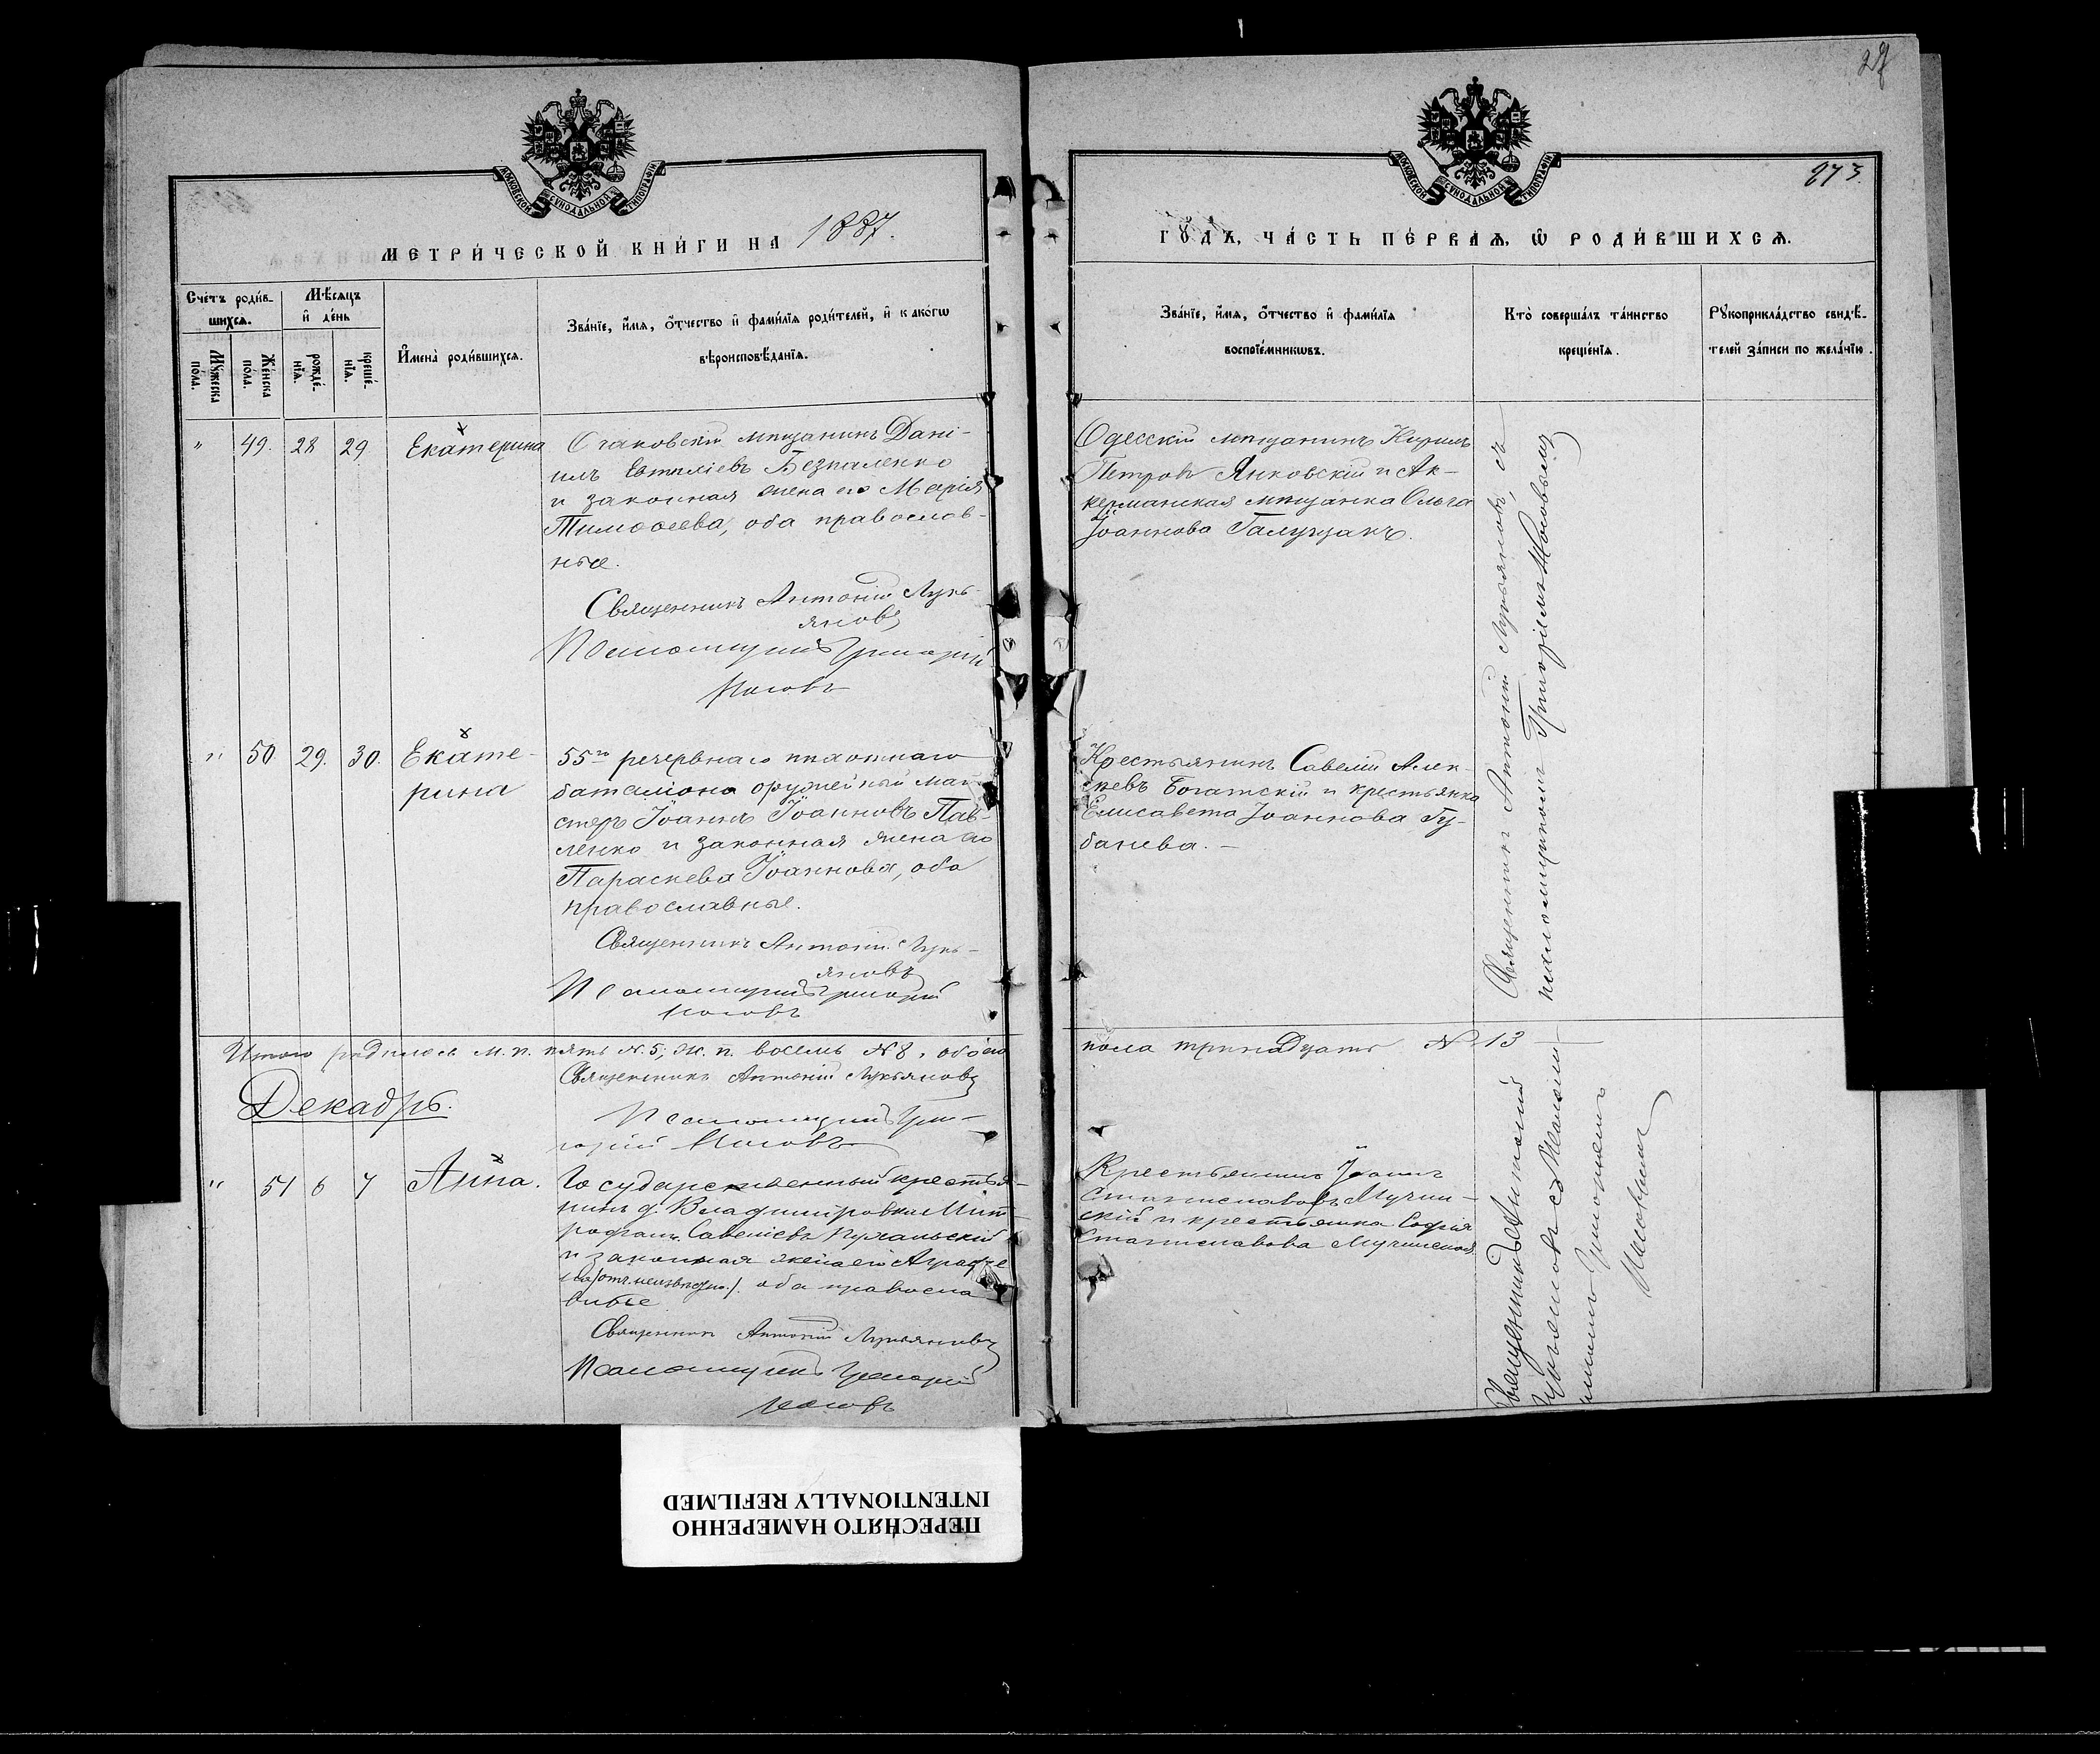 27
МОСКОВСКОЙ СѴНОДАЛЬНОЙ ТИПОГРАФІИ
МЕТРИ́ЧЕСКОЙ КНИ́ГИ НА 1887.
Сче́тъ роди́в-
шихся.
Мѣ́сяцъ
и҆ де́нь
Мꙋ́жеска
по́ла.
Же́нска
по́ла.
рожде́-
нїѧ.
креще́-
нїѧ.
И҆мена̀ роди́вшихсѧ.
Зва́нїе, и҆́мѧ, ѻ҆́тчество и҆ фами́лїѧ роди́телей, и҆ како́гѡ
вѣроисповѣ́данїѧ.
" 49. 28 29 Екатерина
Очаковскій мѣщанинъ Дані-
илъ Евтиліевъ Безпаленко
и законная жена его Марія
Тимоѳеева, оба православ-
ные.
Священникъ Антоній Лукь-
яновъ
Псаломщикъ Григорій
Носовъ
" 50. 29. 30. Екате-
рина
55го резервнаго пѣхотнаго
баталіона оружейный май-
стеръ Іоаннъ Іоанновъ Пав-
ленко и законная жена его
Параскева Іоаннова, оба
православные.
Священникъ Антоній Лукь-
яновъ
Псаломщикъ Григорій
Носовъ
Итого родилось м. п. пять N. 5; ж. п. восемь N 8, обоего
Священникъ Антоній Лукьяновъ
Декабрь.
Псаломщикъ Гри-
горій Носовъ
" 51 6 7 Анна.
Государственный крестья-
нинъ д. Владиміровки Мит-
рофанъ Савеліевъ
и законная жена его Аграфе
на /отч. неизвѣстно/. оба правосла
вные
Священникъ Антоній Лукьяновъ
Псаломщикъ Григорій
Носовъ
МОСКОВСКОЙ СѴНОДАЛЬНОЙ ТИПОГРАФІИ
273.
ГО́ДЪ, ЧА́СТЬ ПЕ́РВАѦ, Ѡ҆ РОДИ́ВШИХСѦ.
Зва́нїе, и҆́мѧ, ѻ҆́тчество и҆ фами́лїѧ
воспрїе́мникѡвъ.
Кто̀ соверша́лъ та́инство
креще́нїѧ.
Рꙋкоприкла́дство свидѣ́-
телей за́писи по жела́нїю.
Одесскій мѣщанинъ Кирилъ
Петровъ Янковскій и Ак-
керманская мѣщанка Ольга
Іоаннова Галущакъ.
Крестьянинъ Савелій Алек-
сѣевъ Богатскій и крестьянка
Елисавета Іоаннова Гу-
банева. -
Священникъ Антоній Лукьяновъ, съ
псаломщикомъ Григоріемъ Носовымъ
пола тринадцать N. 13
Крестьянинъ Іоаннъ
Станиславовъ Мучин-
скій и крестьянка Софія
Станиславова Мучинская
Священникъ Антоній
Лукьяновъ съ Псаломщи
комъ Григоріемъ
Носовымъ
ПЕРЕСНЯТО НАМЕРЕННО
INTENTIONALLY REFILMED